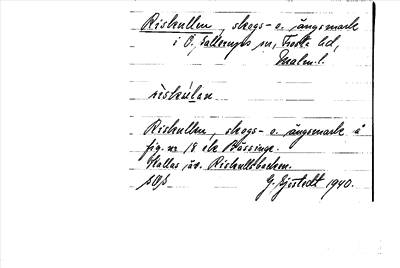 Riskullen, skogs- o. ängsmark
i Ö. Sallerups sn, Frosta hd,
Malm. l.
Riskullen, skogs- o. ängsmark å
fig. nr 18 ek Bässinge.
Kallas äv. Riskullabacken.
G. Sjöstedt 1940.